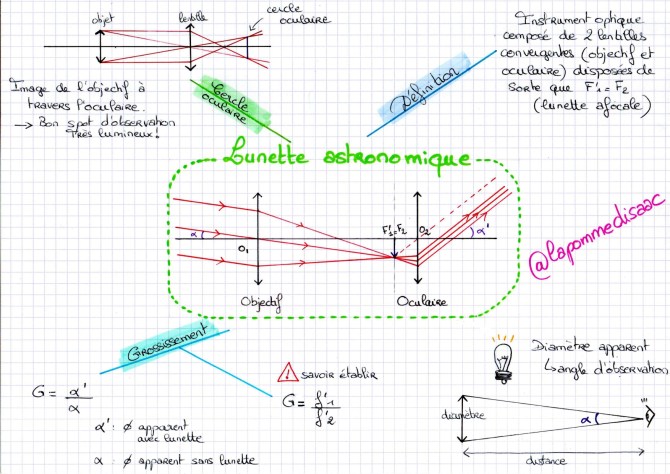 objet
lentille
cercle
oculaire
Image de l'objectif à
travers l'oculaire.
→ Bon spot d'observation
très lumineux!
Cercle
oculaire
Définition
Instrument optique
composé de 2 lentilles
convergentes (objectif et
oculaire) disposées de
sorte que F'1 = F2
(lunette afocale)
Lunette astronomique
α
O1
F'1=F2
O2
α'
Objectif
Oculaire
@lapommedisaac
Grossissement
G = α'/α
α' : ϕ apparent
avec lunette
α : ϕ apparent sans lunette
! savoir établir
G = f'1/f'2
Diamètre apparent
↳ angle d'observation
diamètre
α
distance